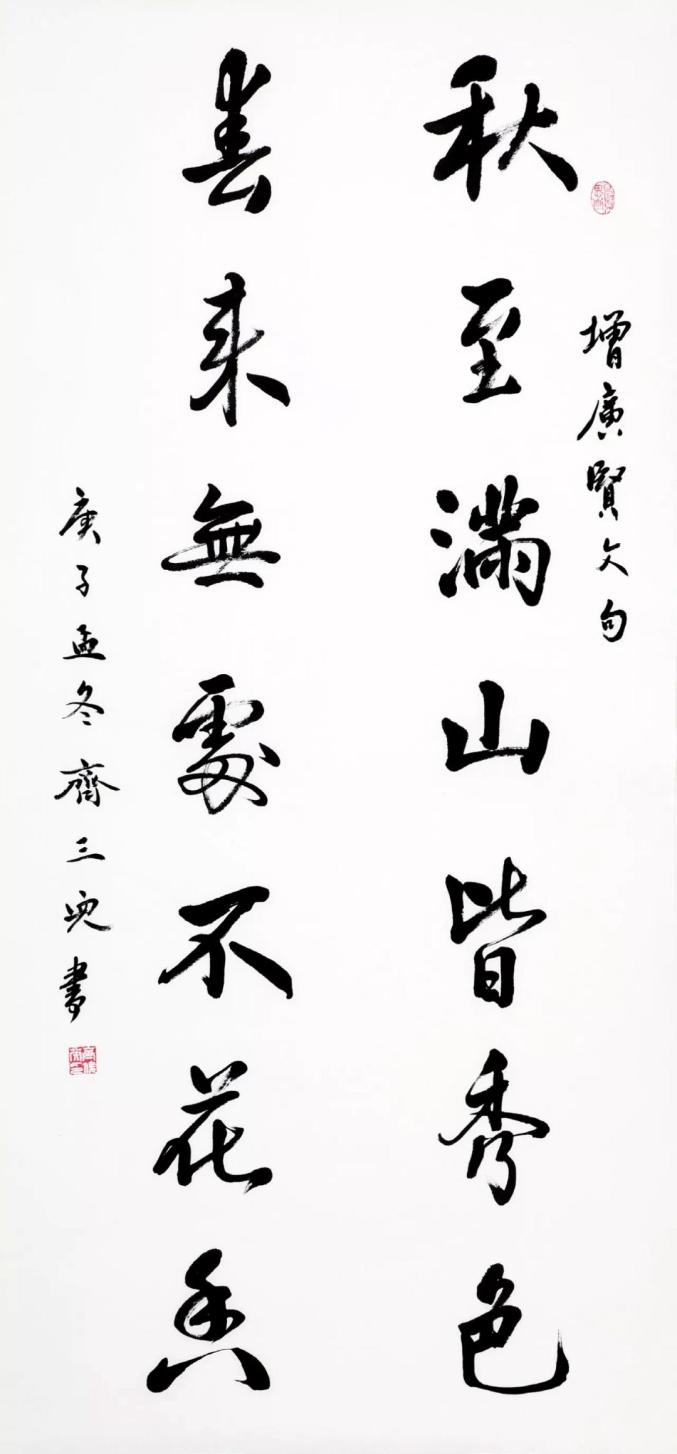 增廣賢文句
秋至滿山皆秀色
春來無處不花香
庚子孟冬齊三兜書